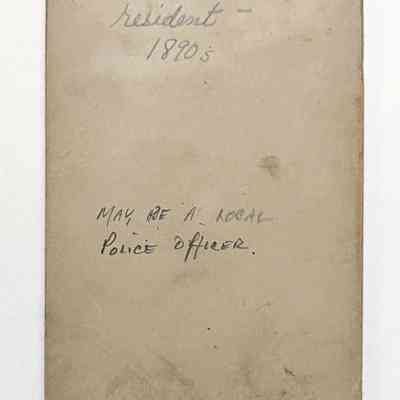 resident –
1890s
MAY BE A LOCAL
POLICE OFFICER.